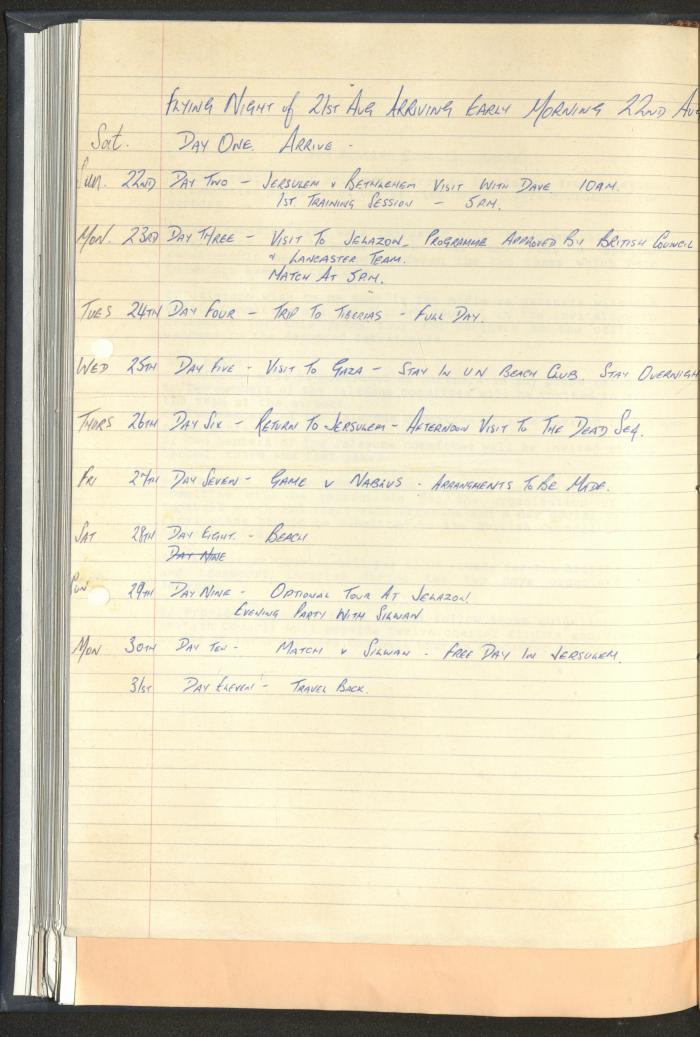 FLYING NIGHT of 21ST AUG ARRIVING EARLY MORNING 22ND AUG
Sat. DAY ONE. ARRIVE -
Sun. 22ND DAY TWO - JERSULEM & BETHLEHEM VISIT WITH DAVE 10AM.
1ST. TRAINING SESSION - 5PM.
MON. 23RD DAY THREE - VISIT TO JELAZON. PROGRAMME APPROVED BY BRITISH COUNCIL
& LANCASTER TEAM.
MATCH AT 5PM.
TUES 24TH DAY FOUR - TRIP TO TIBERIAS - FULL DAY.
WED 25TH DAY FIVE - VISIT TO GAZA - STAY IN UN BEACH CLUB. STAY OVERNIGH
THURS 26TH DAY SIX - RETURN TO JERSULEM - AFTERNOON VISIT TO THE DEAD SEA.
FRI 27TH DAY SEVEN - GAME v NABLUS - ARRANGMENTS TO BE MADE.
SAT 28TH DAY EIGHT. - BEACH
DAY NINE
SUN 29TH DAY NINE - OPTIONAL TOUR AT JELAZON
EVENING PARTY WITH SILWAN
MON 30TH DAY TEN - MATCH v SILWAN - FREE DAY IN JERSULEM.
31ST DAY ELEVEN - TRAVEL BACK.